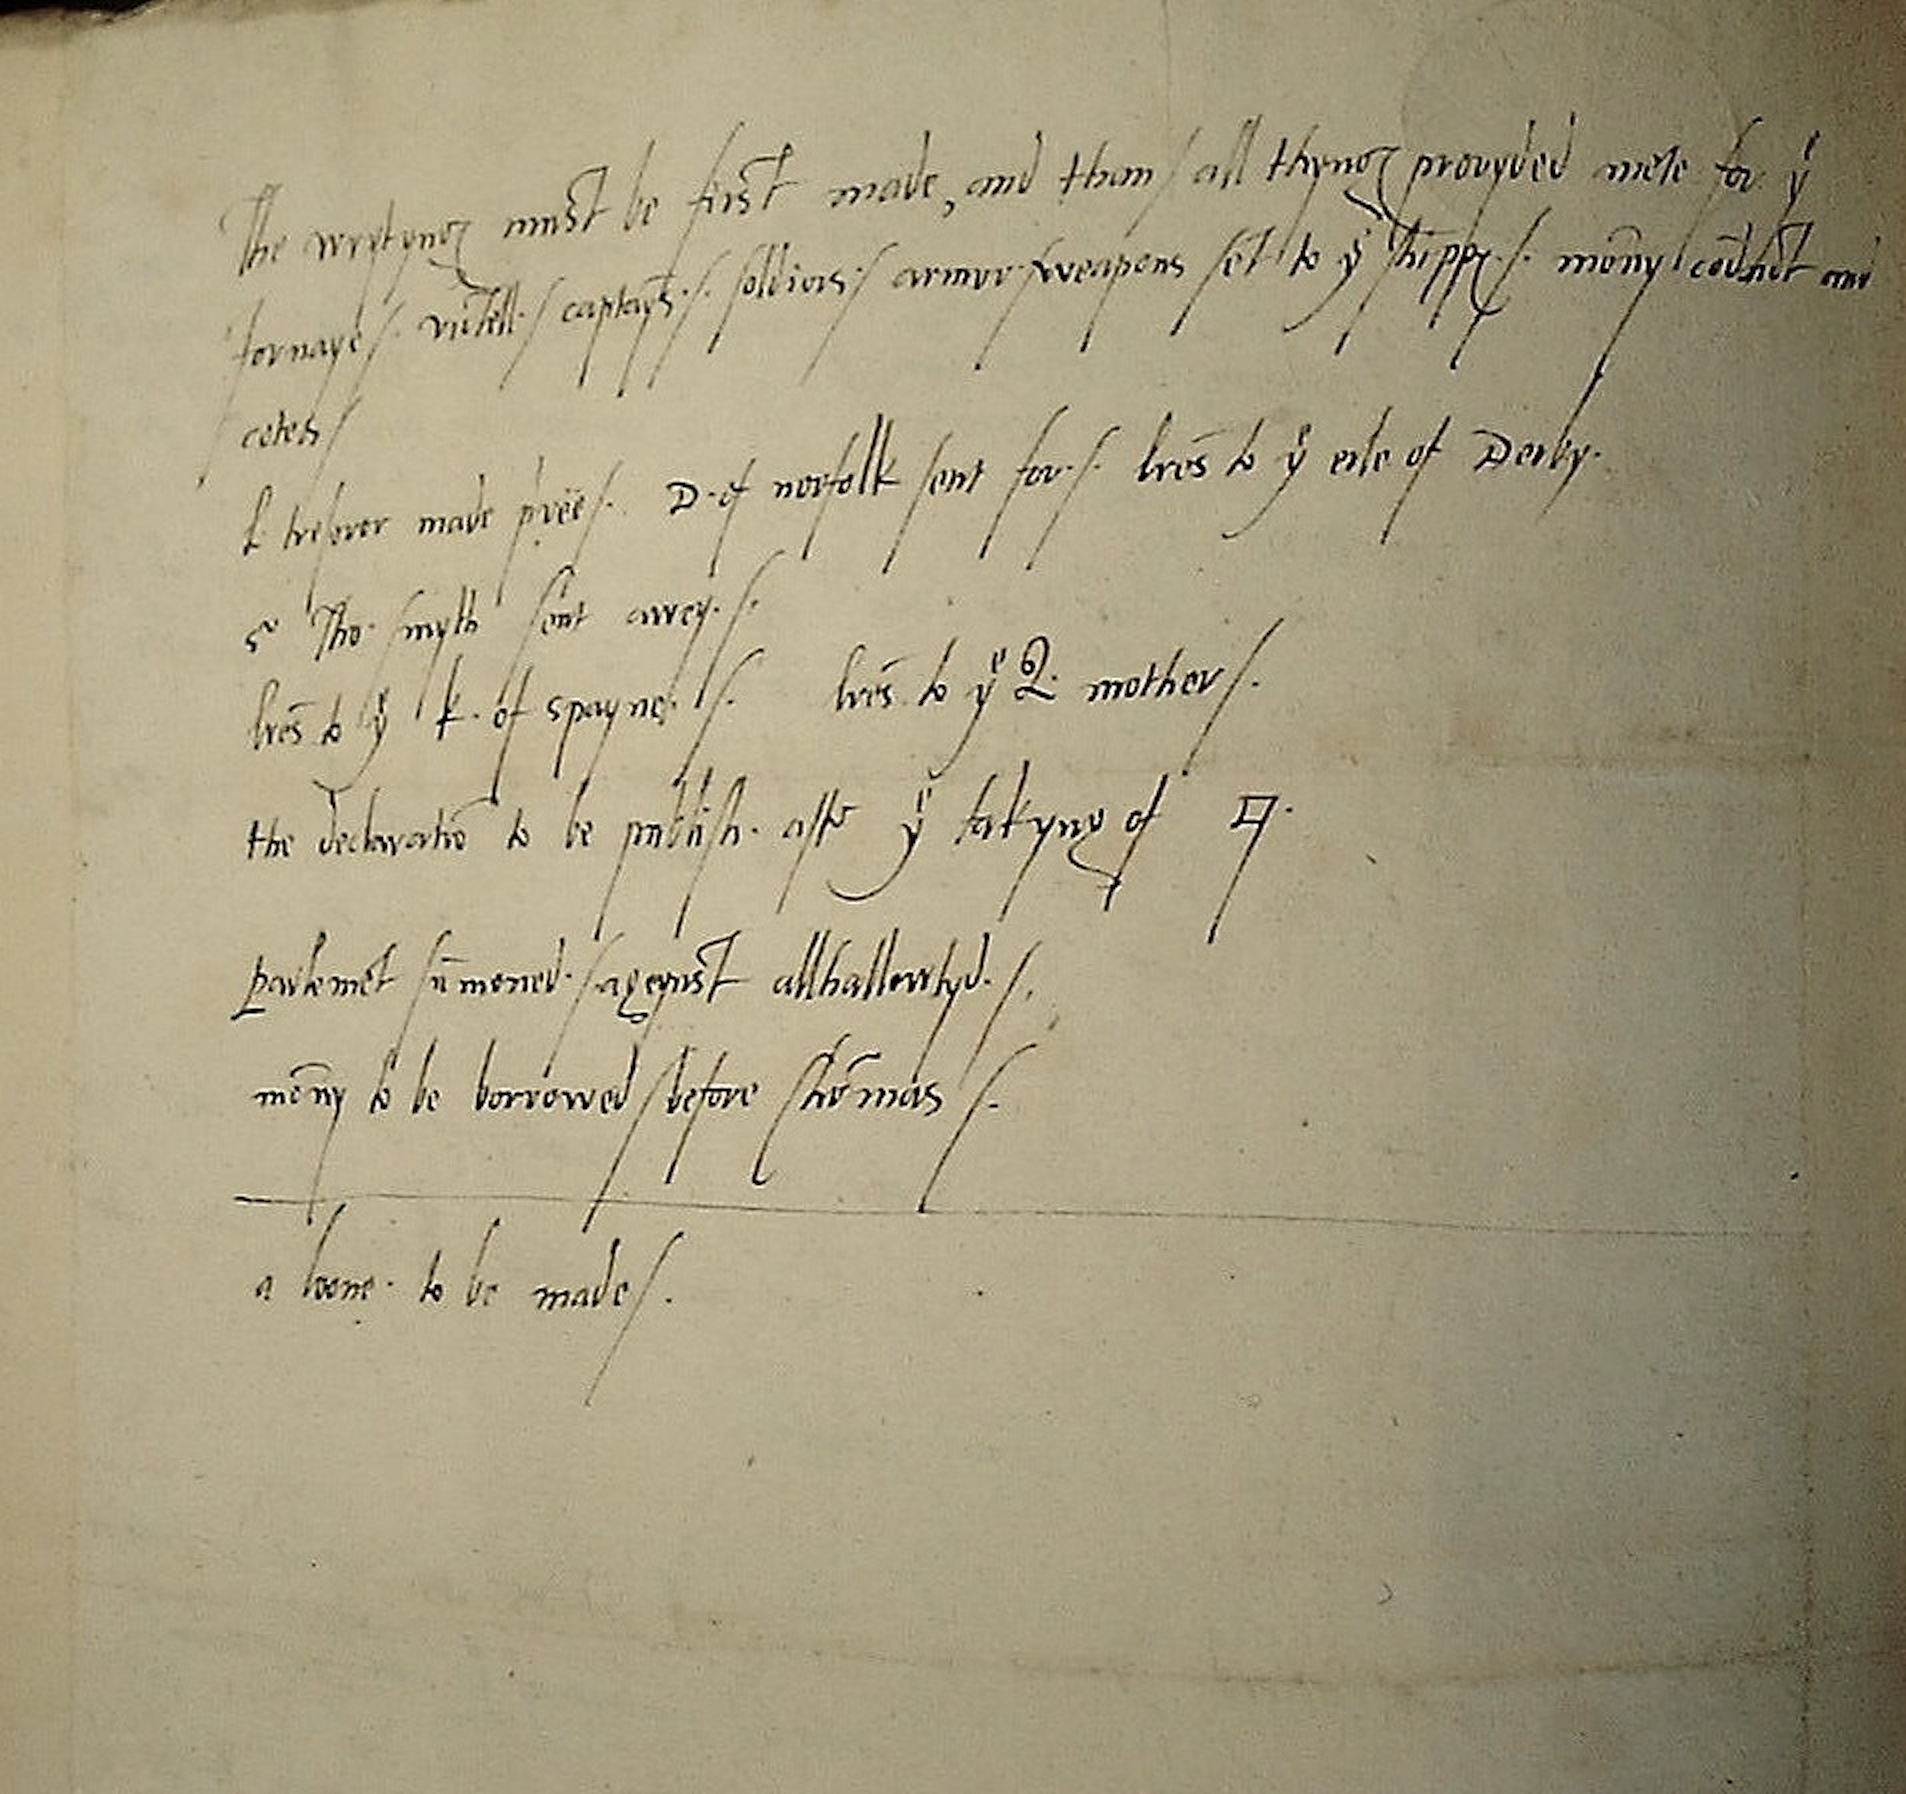 The wrytyngꝭ must be first made, and than / all thyngꝭ provyded mete for yᵉ
fornaye /. vitell. / captays. /. soldiors. / armor / weapons set to yᵉ shippꝭ. /. mony and
cotes /
L tresorer made /. D. of norfolk sent for. /. lr̃es to yᵉ erle of Derby.
Sʳ Tho. smyth sent awey. /.
lr̃es to yᵉ k. of spayne. /. lr̃es to yᵉ Q. mother /.
the declaratiō to be publish. aftʳ yᵉ takyng of
parlemēt sūmoned. / ageynst allhallowtyd. /.
mōny to be borrowed / before /.
a loone. to be made /.